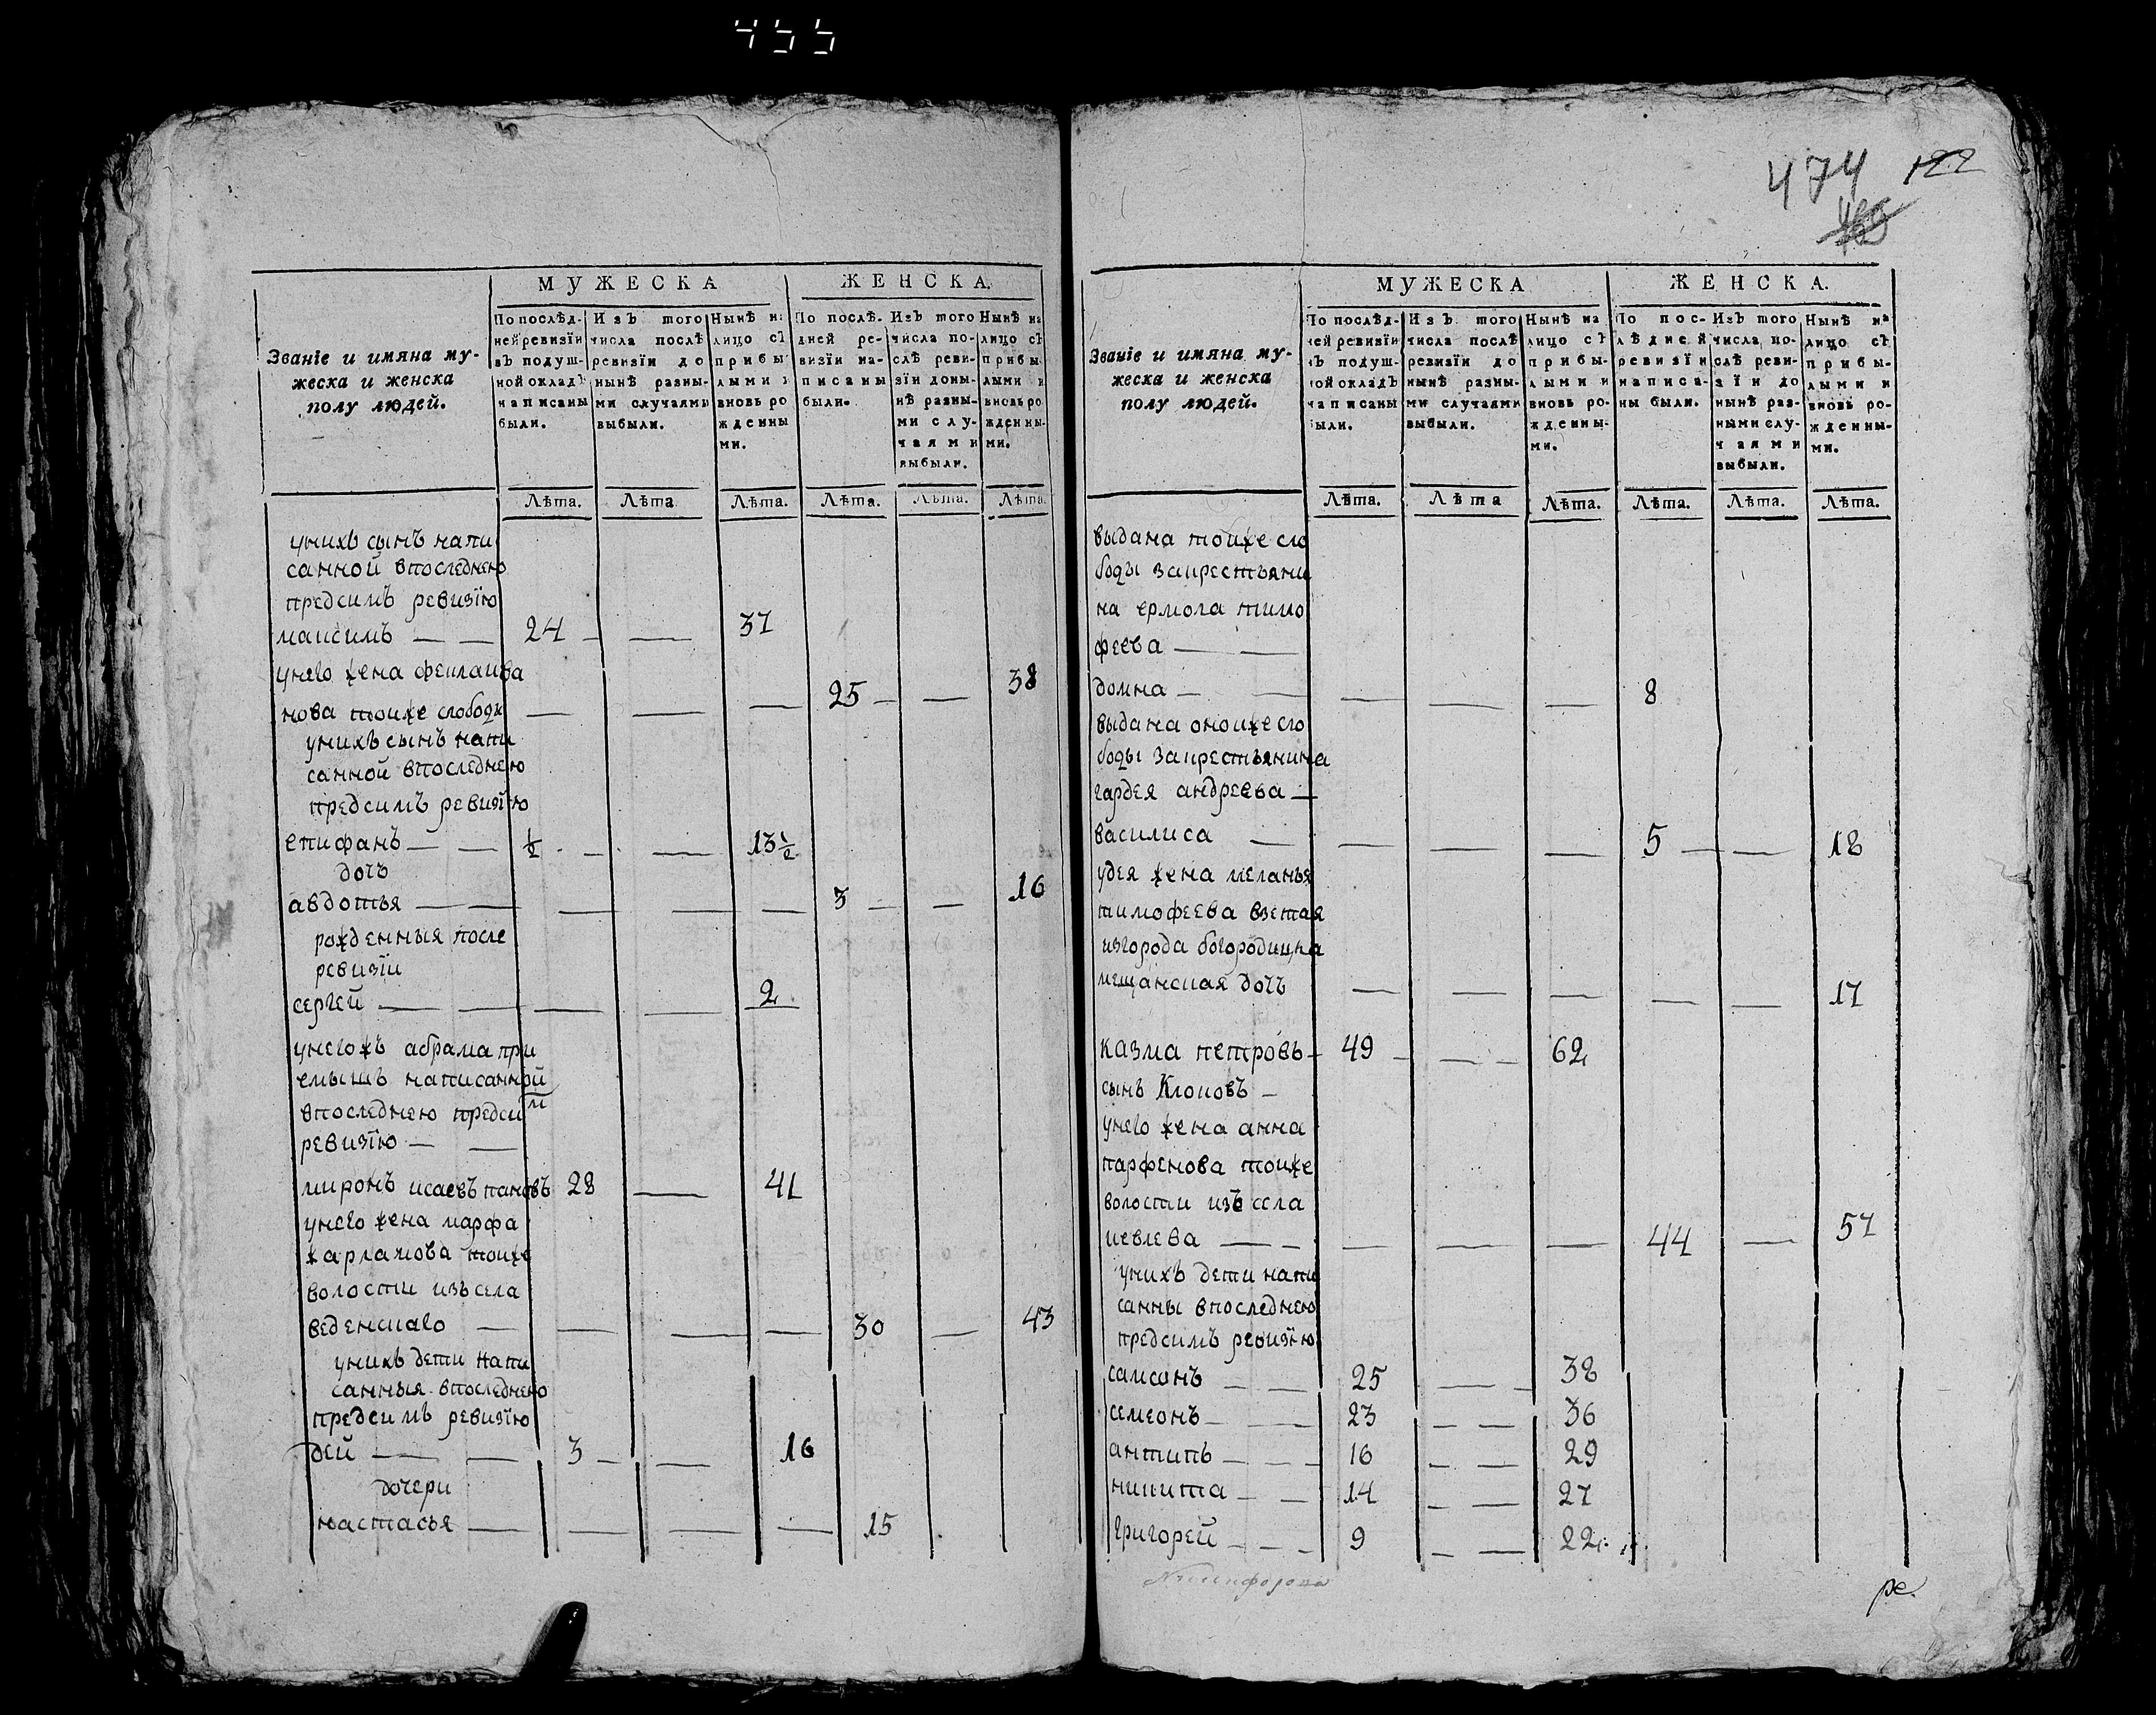 455
474 122
МУЖЕСКА
ЖЕНСКА.
Званіе и имяна му-
жеска и женска
полу людей.
По послѣд-
ней ревизїи
въ подуш-
ной окладъ
написаны
были.
Изъ того
числа послѣ
ревизіи до
нынѣ разны-
ми случаями
выбыли.
Нынѣ на
лицо съ
прибы
лыми и
вновь ро
жденны
ми.
По послѣ-
дней ре-
визіи на-
писаны
были.
Изъ того
числа по-
слѣ реви-
зїи доны-
нѣ разны-
ми слу-
чаями
выбыли.
Нынѣ на
лицо съ
прибы
лыми и
вновь ро
жденны-
ми.
Лѣта. Лѣта Лѣта. Лѣта. Лѣта. Лѣта.
унихъ сынъ напи
санной впоследнею
предсимъ ревизїю
максимъ — — 24 — — 37
унего жена феклаива
нова тоиже слободы — — — 25 — — 38
унихъ сынъ напи
санной впоследнею
предсимъ ревизїю
епифанъ — — ½ — — 13½
дочь
авдотья — — — — — 3 — — 16
рожденныя после
ревизїи
сергей — — — — 2
унегожъ абрама при
емышъ написанной
впоследнею предсим
ревизїю — —
миронъ исаевъ пановъ 28 — 41
унего жена марфа
харламова тоиже
волости изъ села
веденскаго — — — — 30 — 43
унихъ дети напи
санныя впоследнею
предсимъ ревизїю
дей — — 3 — — 16
дочери
настасья — — — — 15
МУЖЕСКА
ЖЕНСКА.
Званіе и имяна му-
жеска и женска
полу людей.
По послѣд-
ней ревизїи
въ подуш-
ной окладъ
написаны
были.
Изъ того
числа послѣ
ревизїи до
нынѣ разны-
ми случаями
выбыли.
Нынѣ на
лицо съ
прибы-
лыми и
вновь ро-
жденны-
ми.
По пос-
лѣдней
ревизїи
написа-
ны были.
Изъ того
числа по-
слѣ реви-
зїи до
нынѣ раз-
ными слу-
чаями
выбыли.
Нынѣ на
лицо съ
прибы-
лыми и
вновь ро-
жденны-
ми.
Лѣта. Лѣта Лѣта. Лѣта. Лѣта. Лѣта.
выдана тоиже сло
боды закрестьяни
на ермола тимо
феева — —
домна — — — — — 8
выдана оноиже сло
боды закрестьянина
гардея андреева —
василиса — — — — 5 — — 18
удея жена меланья
тимофеева взетая
изгорода богородицка
мещанская дочь — — — — — 17
казма петровъ — 49 — — — 62
сынъ Клоковъ —
унего жена анна
парфенова тоиже
волости изъ села
иевлева — — — — — 44 — 57
унихъ дети напи
санны впоследнею
предсимъ ревизїю
самсонъ — — 25 — — 38
семеонъ — — 23 — — 36
антипъ — — — 16 — — 29
никита — — 14 — — 27
григорей — — — 9 — — 22
ре.